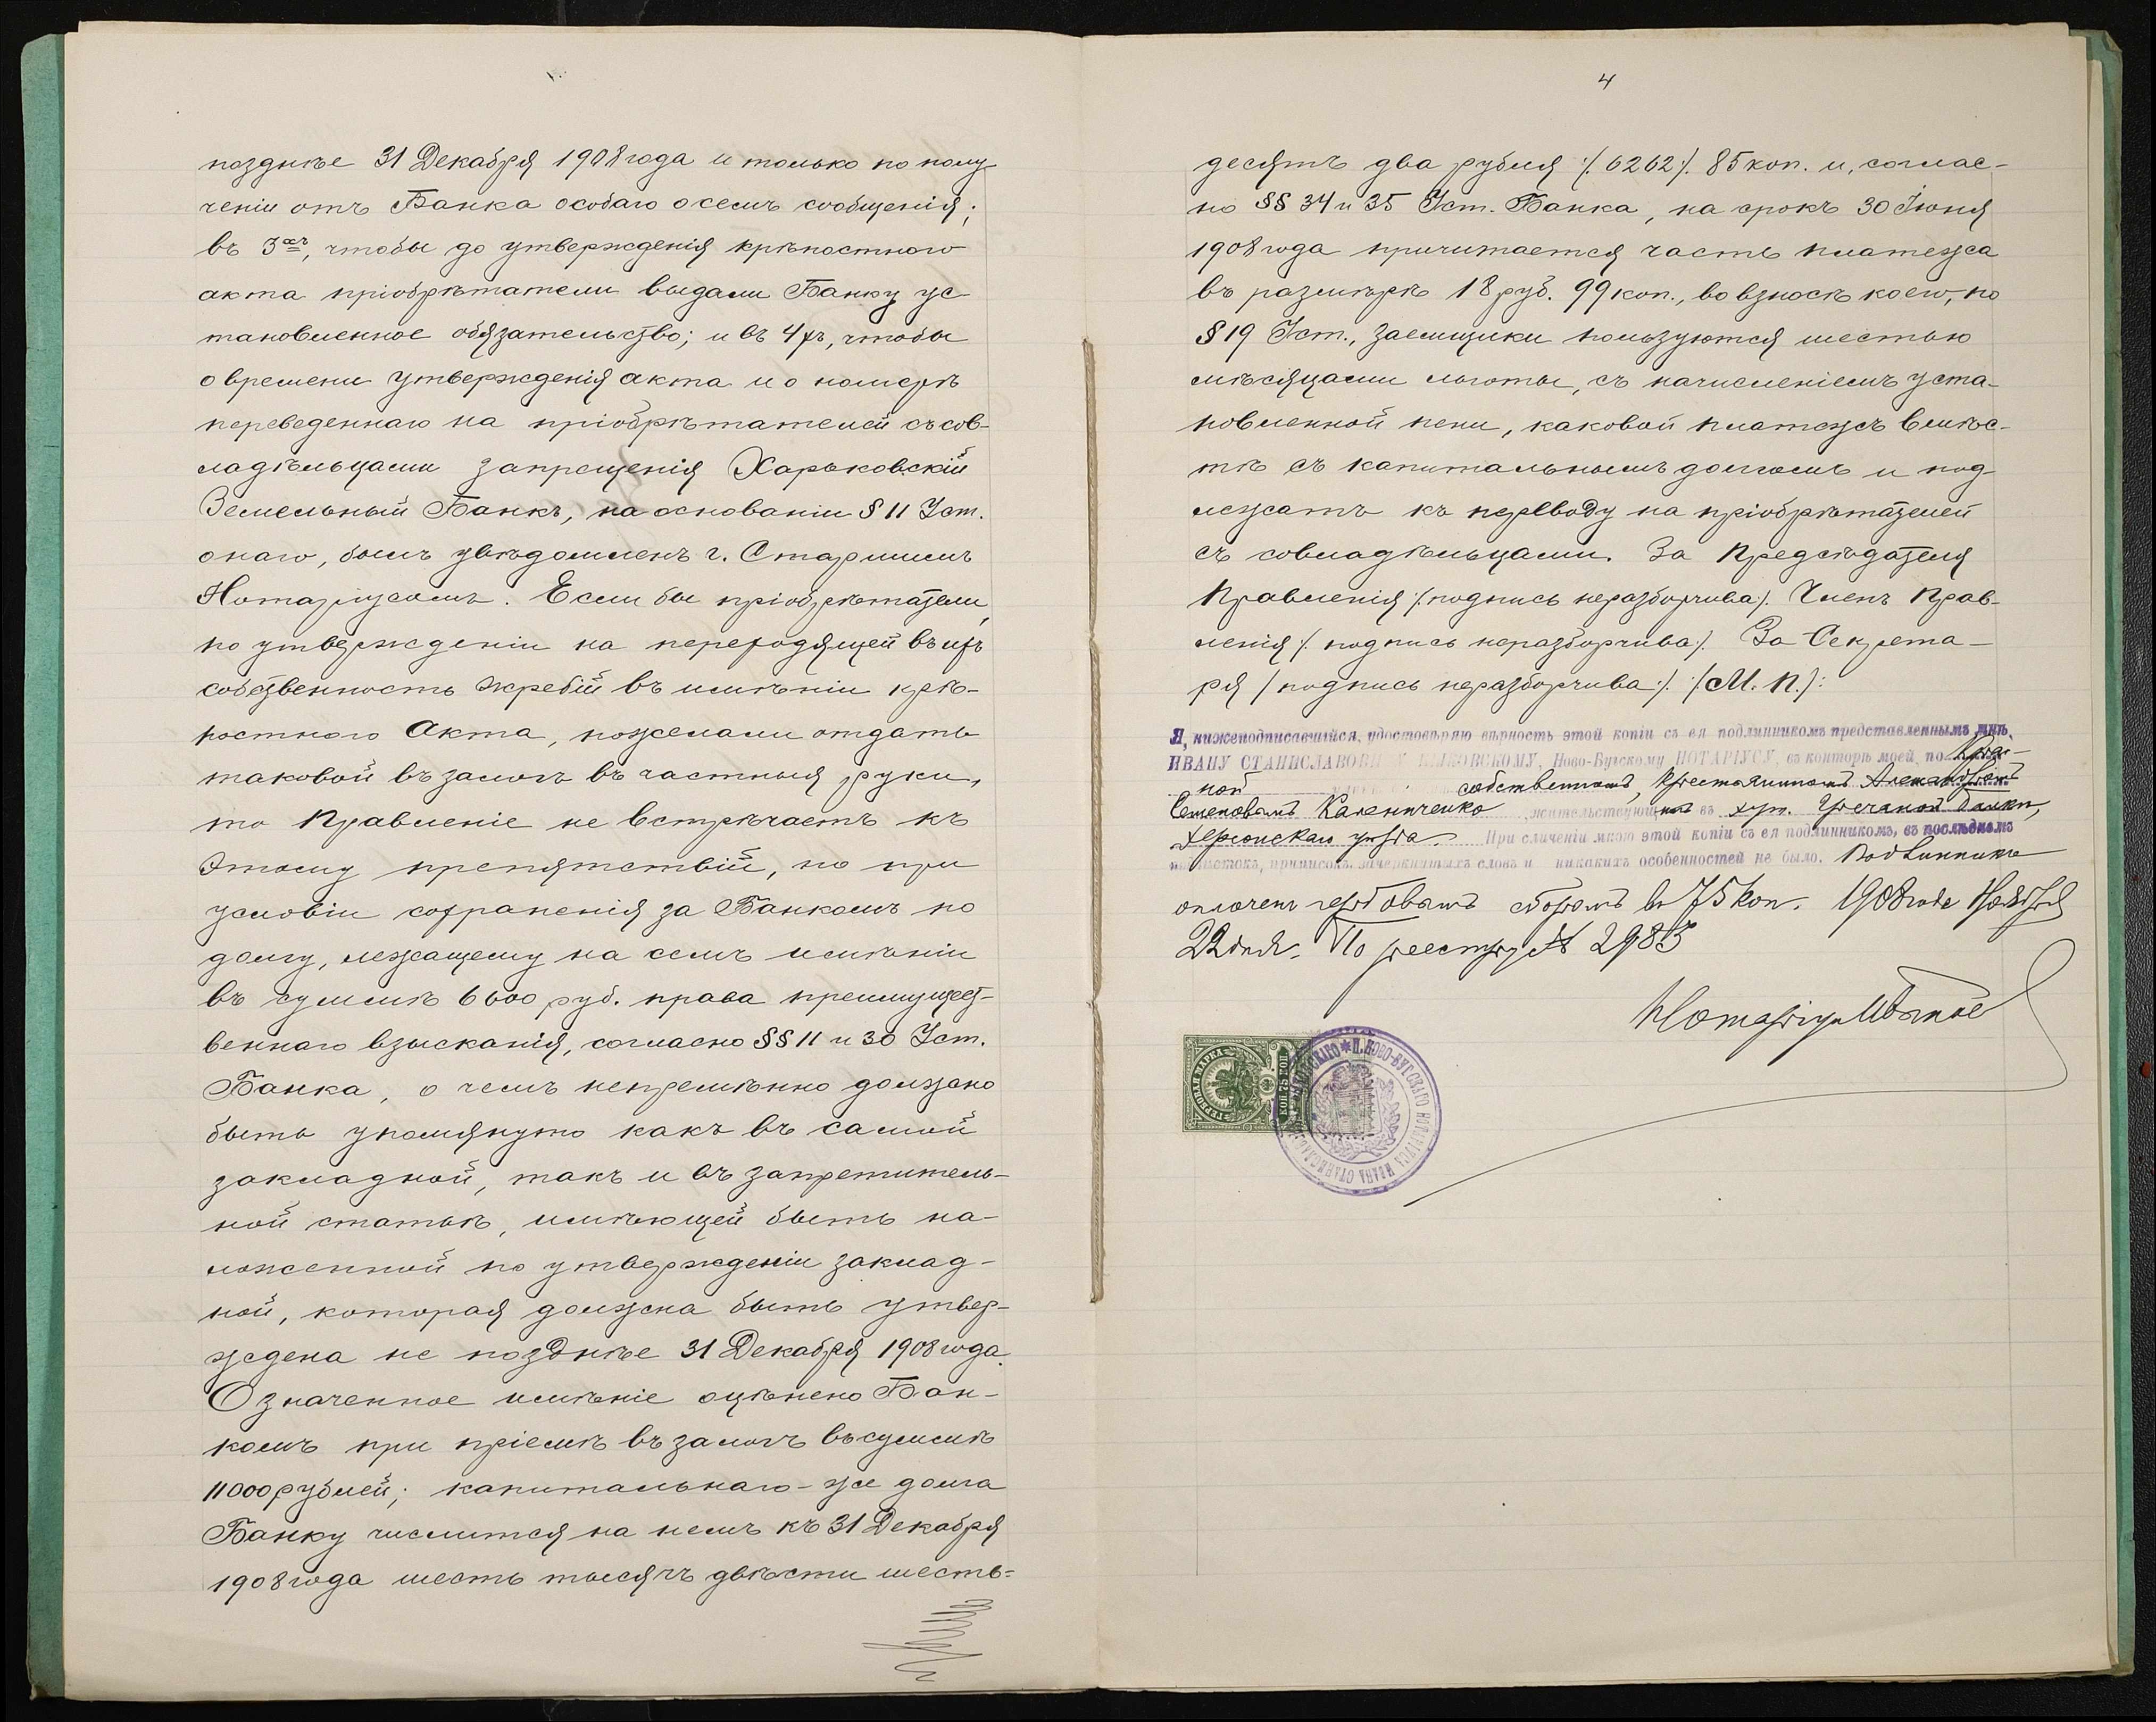 позднѣе 31 Декабря 1908 года и только по полу-
ченіи отъ Банка особаго о семъ сообщенія;
въ 3хъ, чтобы до утвержденія крѣпостного
акта пріобрѣтатели выдали Банку ус-
тановленное обязательство; и въ 4хъ, чтобы
о времени утвержденія акта и о номерѣ
переведеннаго на пріобрѣтателей съ сов-
ладѣльцами запрещенія Харьковскій
Земельный Банкъ, на основаніи § 11 Уст.
онаго, былъ увѣдомленъ г. Старшимъ
Нотаріусомъ. Если бы пріобрѣтатели,
по утвержденіи на переходящей въ ихъ
собственность жребій въ имѣніи крѣ-
постного Акта, пожелали отдать
таковой въ залогъ въ частныя руки,
то Правленіе не встрѣчаетъ къ
этому препятствій, но при
условіи сохраненія за Банкомъ по
долгу, лежащему на семъ имѣніи
въ суммѣ 6600 руб. права преимущест-
веннаго взысканія, согласно §§ 11 и 30 Уст.
Банка, о чемъ непремѣнно должно
быть упомянуто какъ въ самой
закладной, такъ и въ запретитель-
ной статьѣ, имѣющей быть на-
ложенной по утвержденіи заклад-
ной, которая должна быть утвер-
ждена не позднѣе 31 Декабря 1908 года.
Означенное имѣніе оцѣнено Бан-
комъ при пріемѣ въ залогъ въ суммѣ
11000 рублей; капитальнаго-же долга
Банку числится на немъ къ 31 Декабря
1908 года шесть тысячъ двѣсти шесть=
4
десятъ два рубля /. 6262 /. 85 коп. и, соглас-
но §§ 34 и 35 Уст. Банка, на срокъ 30 Іюня
1908 года причитается часть платежа
въ размѣрѣ 18 руб. 99 коп., во взносѣ коего, по
§ 19 Уст., заемщики пользуются шестью
мѣсяцами льготы, съ начисленіемъ уста-
новленной пени, каковой платежъ вмѣс-
тѣ съ капитальнымъ долгомъ и под-
лежатъ къ переводу на пріобрѣтателей
съ совладѣльцами. За Предсѣдателя
Правленія /: подпись неразборчива /. Членъ Прав-
ленія /: подпись неразборчива /. За Секрета-
ря / подпись неразборчива :/. /: М. П. /:
Я, нижеподписавшійся, удостовѣряю вѣрность этой копіи съ ея подлинникомъ представленнымъ мнѣ,
ИВАНУ СТАНИСЛАВОВИЧУ, Ново-Бугскому НОТАРІУСУ, въ конторѣ моей, по
собственникомъ, крестьяниномъ Александромъ
Семеновымъ Калениченко жительствующимъ въ хут. Гречаной Балки,
Херсонскаго уѣзда. При сличеніи мною этой копіи съ ея подлинникомъ, въ послѣднемъ
приписокъ, зачеркнутыхъ словъ и никакихъ особенностей не было. Подлинникъ
оплоченъ гербовымъ сборомъ въ 75 коп. 1908 года Ноября
22 дня. По реестру № 2983
Нотаріусъ
ГЕРБОВАЯ МАРКА
КОП. 75 КОП
П. НОВО-БУГСКАГО НОТАРІУСА ИВАНА